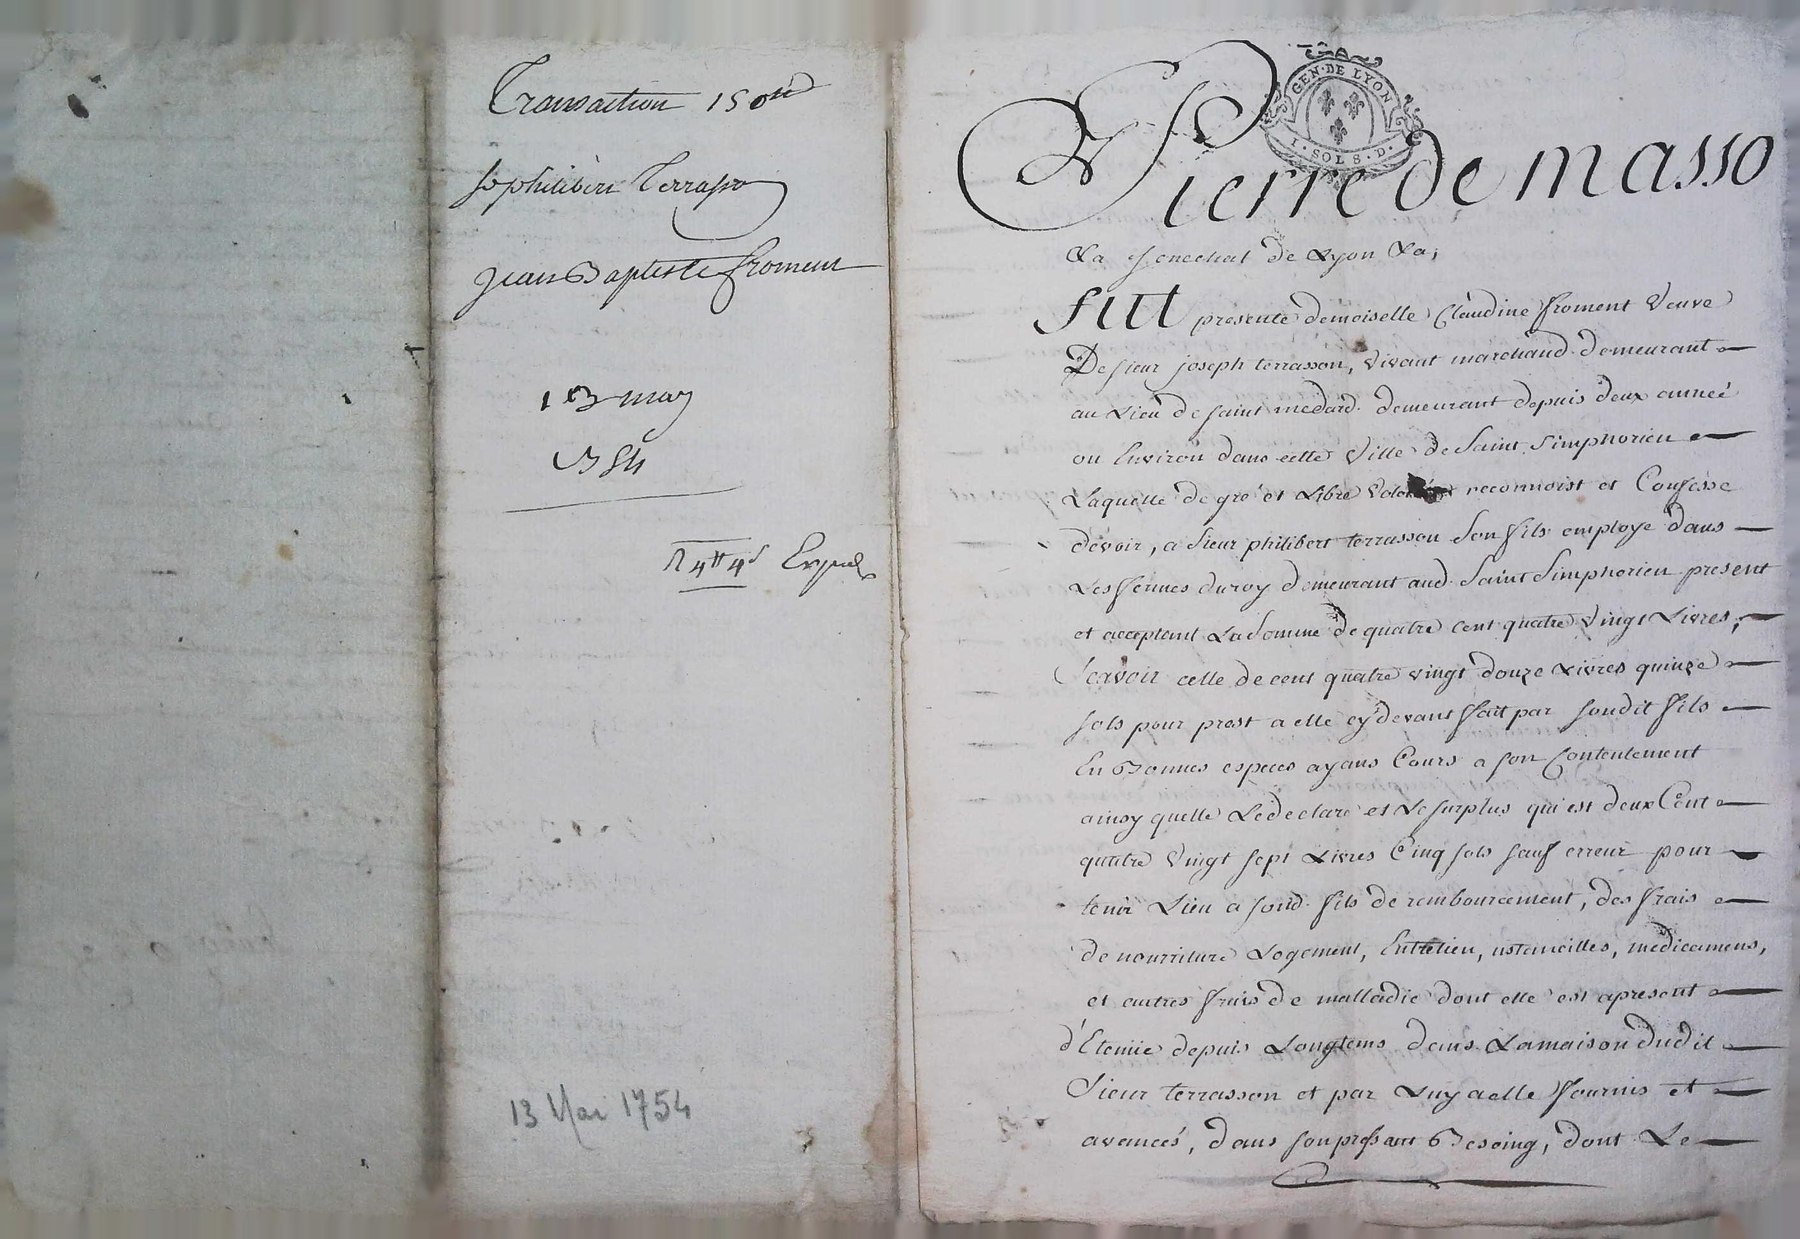 Transaction 150ᵗᵗ
Sr philibert Terrasson
Jean Baptiste froment
13 may
1754
R 4ᵗᵗ 4ˢ
13 Mai 1754
GEN·DE LYON
1·SOL 8·D·
Pierre de masso
La senechal de Lyon La;
Fut presente demoiselle Claudine froment Veuve
De sieur joseph terrasson, vivant marchand demeurant
au Lieu de saint medard demeurant depuis deux année
ou Environ dans cette Ville de Saint Simphorien
Laquelle de gré et Libre reconnoist et Confesse
devoir, a Sieur philibert terrasson Son fils employe dans
Les fermes du roy demeurant aud. Saint Simphorien present
et acceptant La Somme de quatre cent quatre Vingt Livres,
Scavoir celle de cent quatre vingt douze Livres quinze
sols pour prest a elle cy devant fait par sondit fils
En Bonnes especes ayans Cours a son Contentement
ainsy quelle Le declare et Le surplus qui est deux Cent
quatre Vingt sept Livres Cinq sols sauf erreur pour
tenir Lieu a sond. fils de rembourcement, des frais
de nourriture Logement, Entretien, ustancilles, medicamens,
et autres frais de malladie dont elle est apresent
d'Etenüe depuis Longtems dans La maison dudit
Sieur terrasson et par Luy a elle fournis et
avancés, dans son pressant Besoing, dont Le